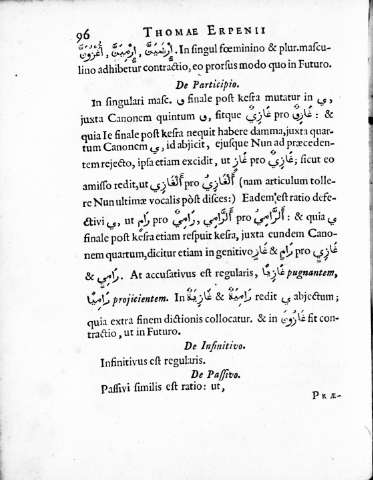 96 THOMAE ERPENII
اِرْضَيَنَّ, اِرْمِيَنَّ, اُغْزُوَنَّ. In singul fœminino & plur. mascu-
lino adhibetur contractio, eo prorsus modo quo in Futuro.
De Participio.
In singulari masc. و finale post kesra mutatur in ي,
juxta Canonem quintum و, fitque غَازِيٌ pro غَازِوٌ: &
quia Ie finale post kesra nequit habere damma, juxta quar-
tum Canonem ي, id abjicit, ejusque Nun ad præceden-
tem rejecto, ipsa etiam excidit, ut غَازٍ pro غَازِيٌ; sicut eo
amisso redit, ut أَلْغَازِي pro أَلْغَازِيُ (nam articulum tolle-
re Nun ultimæ vocalis pòst disces:) Eadem est ratio defe-
ctivi ي, ut رَامٍ pro رَامِيٌ, أَلرَّامِي pro أَلرَّامِيُ: & quia ي
finale post kesra etiam respuit kesra, juxta eundem Cano-
nem quartum, dicitur etiam in genitivo غَازٍ & رَامٍ pro غَازِيٍ
& رَامِيٍ. At accusativus est regularis, غَازِيًا pugnantem,
رَامِيًا projicientem. In غَازِيَةٌ & رَامِيَةٌ redit ي abjectum;
quia extra finem dictionis collocatur. & in غَازُونَ fit con-
tractio, ut in Futuro.
De Infinitivo.
Infinitivus est regularis.
De Passivo.
Passivi similis est ratio: ut,
PRÆ-